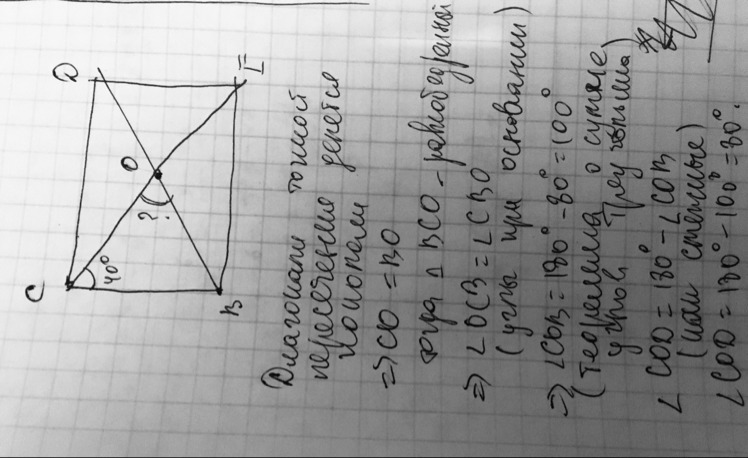 C
D
O
?
40°
B
I
Диагонали точкой
пересечения делятся
пополам
=> CO = BO
тогда △ BCO - равнобедренный
=> ∠OCB = ∠CBO
(углы при основании)
=> ∠COB = 180° - 80° = 100°
(теорема о сумме
углов треугольника)
∠COD = 180° - ∠COB
(как смежные)
∠COD = 180° - 100° = 80°.